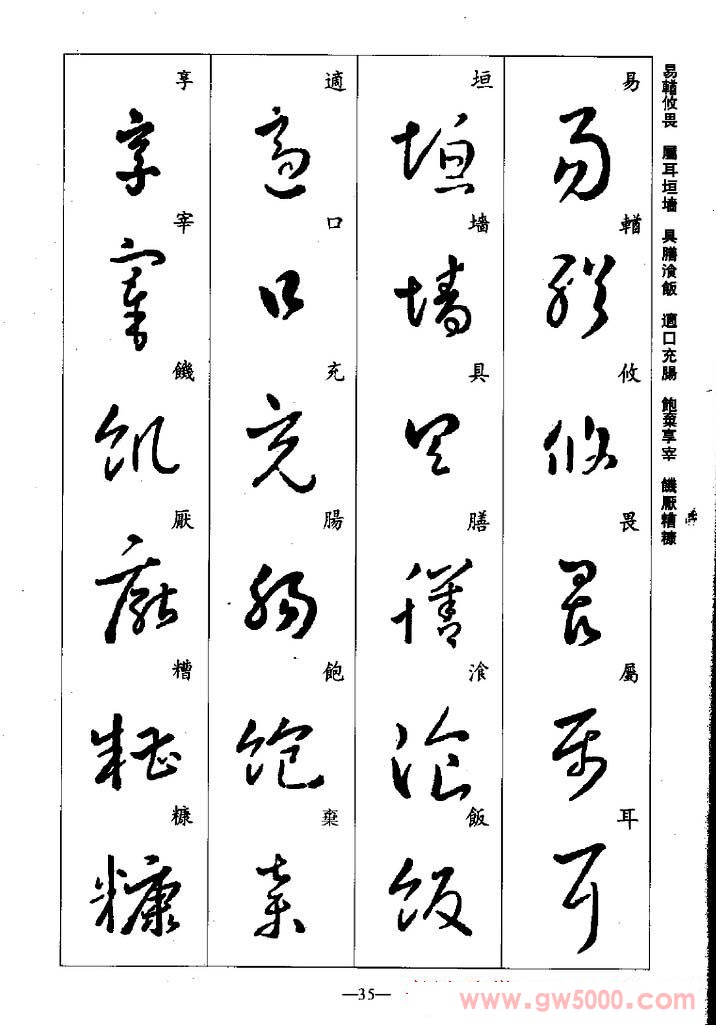 易輶攸畏　屬耳垣墻　具膳湌飯　適口充腸　飽棄享宰　饑厭糟糠
易輶攸畏屬耳
垣墻具膳湌飯
適口充腸飽棄
享宰饑厭糟糠
—35—
www.gw5000.com